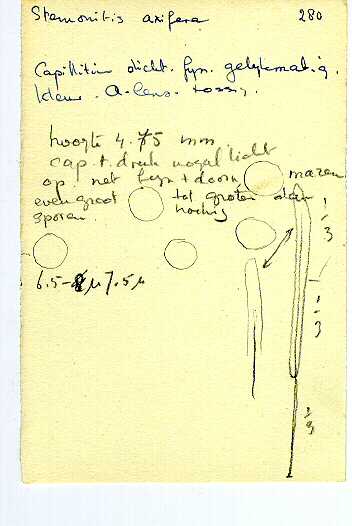 Stemonitis axifera 280
Capillitium dicht. fyn. gelykmatig.
kleur.
hoogte 4.75 mm
cap. t. druk nogal licht
op. net fyn + doorn mazen
even groot tot groter dan
sporen.
6.5-8µ 7.5µ
1/3
1/3
1/3